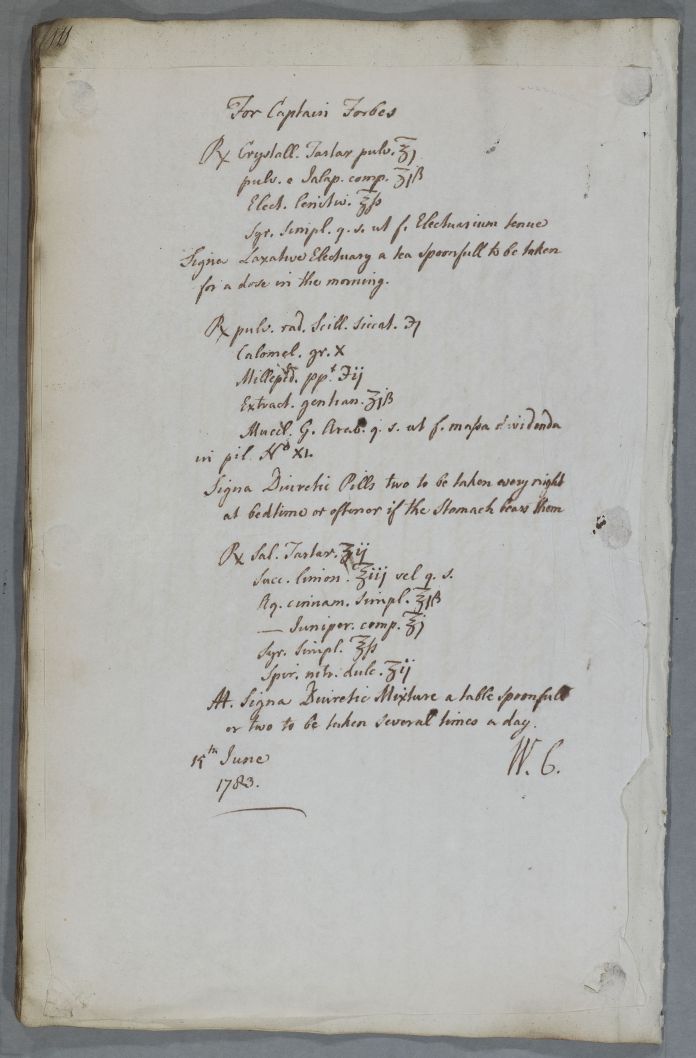 For Captain Forbes
℞ Crystall. Tartar pulv. ℥j
pulv. e Jalap. comp. ʒjß
Elect. lenitiv. ℥ß
Syr. simpl. q. s. ut f. Electuarium tenue
Signa Laxative Electuary a tea spoonfull to be taken
for a dose in the morning.
℞ pulv. rad. Scill. siccat. ℈j
Calomel. gr. X
Milleped. ppt. ℈ij
Extract. gentian. ʒjß
Mucil. G. Arab. q. s. ut f. massa dividenda
in pil. No XL.
Signa Diuretic Pills two to be taken every night
at bedtime or oftener if the Stomach bears them
℞ Sal. Tartar. ʒij
Succ. limon. ℥iij vel q. s.
Aq. cinnam. simpl. ℥jß
— Juniper. comp. ℥j
Syr. simpl. ℥ß
Spir. nitr. dulc. ʒij
M. Signa Diuretic Mixture a table spoonfull
or two to be taken several times a day.
15th June W. C.
1783.